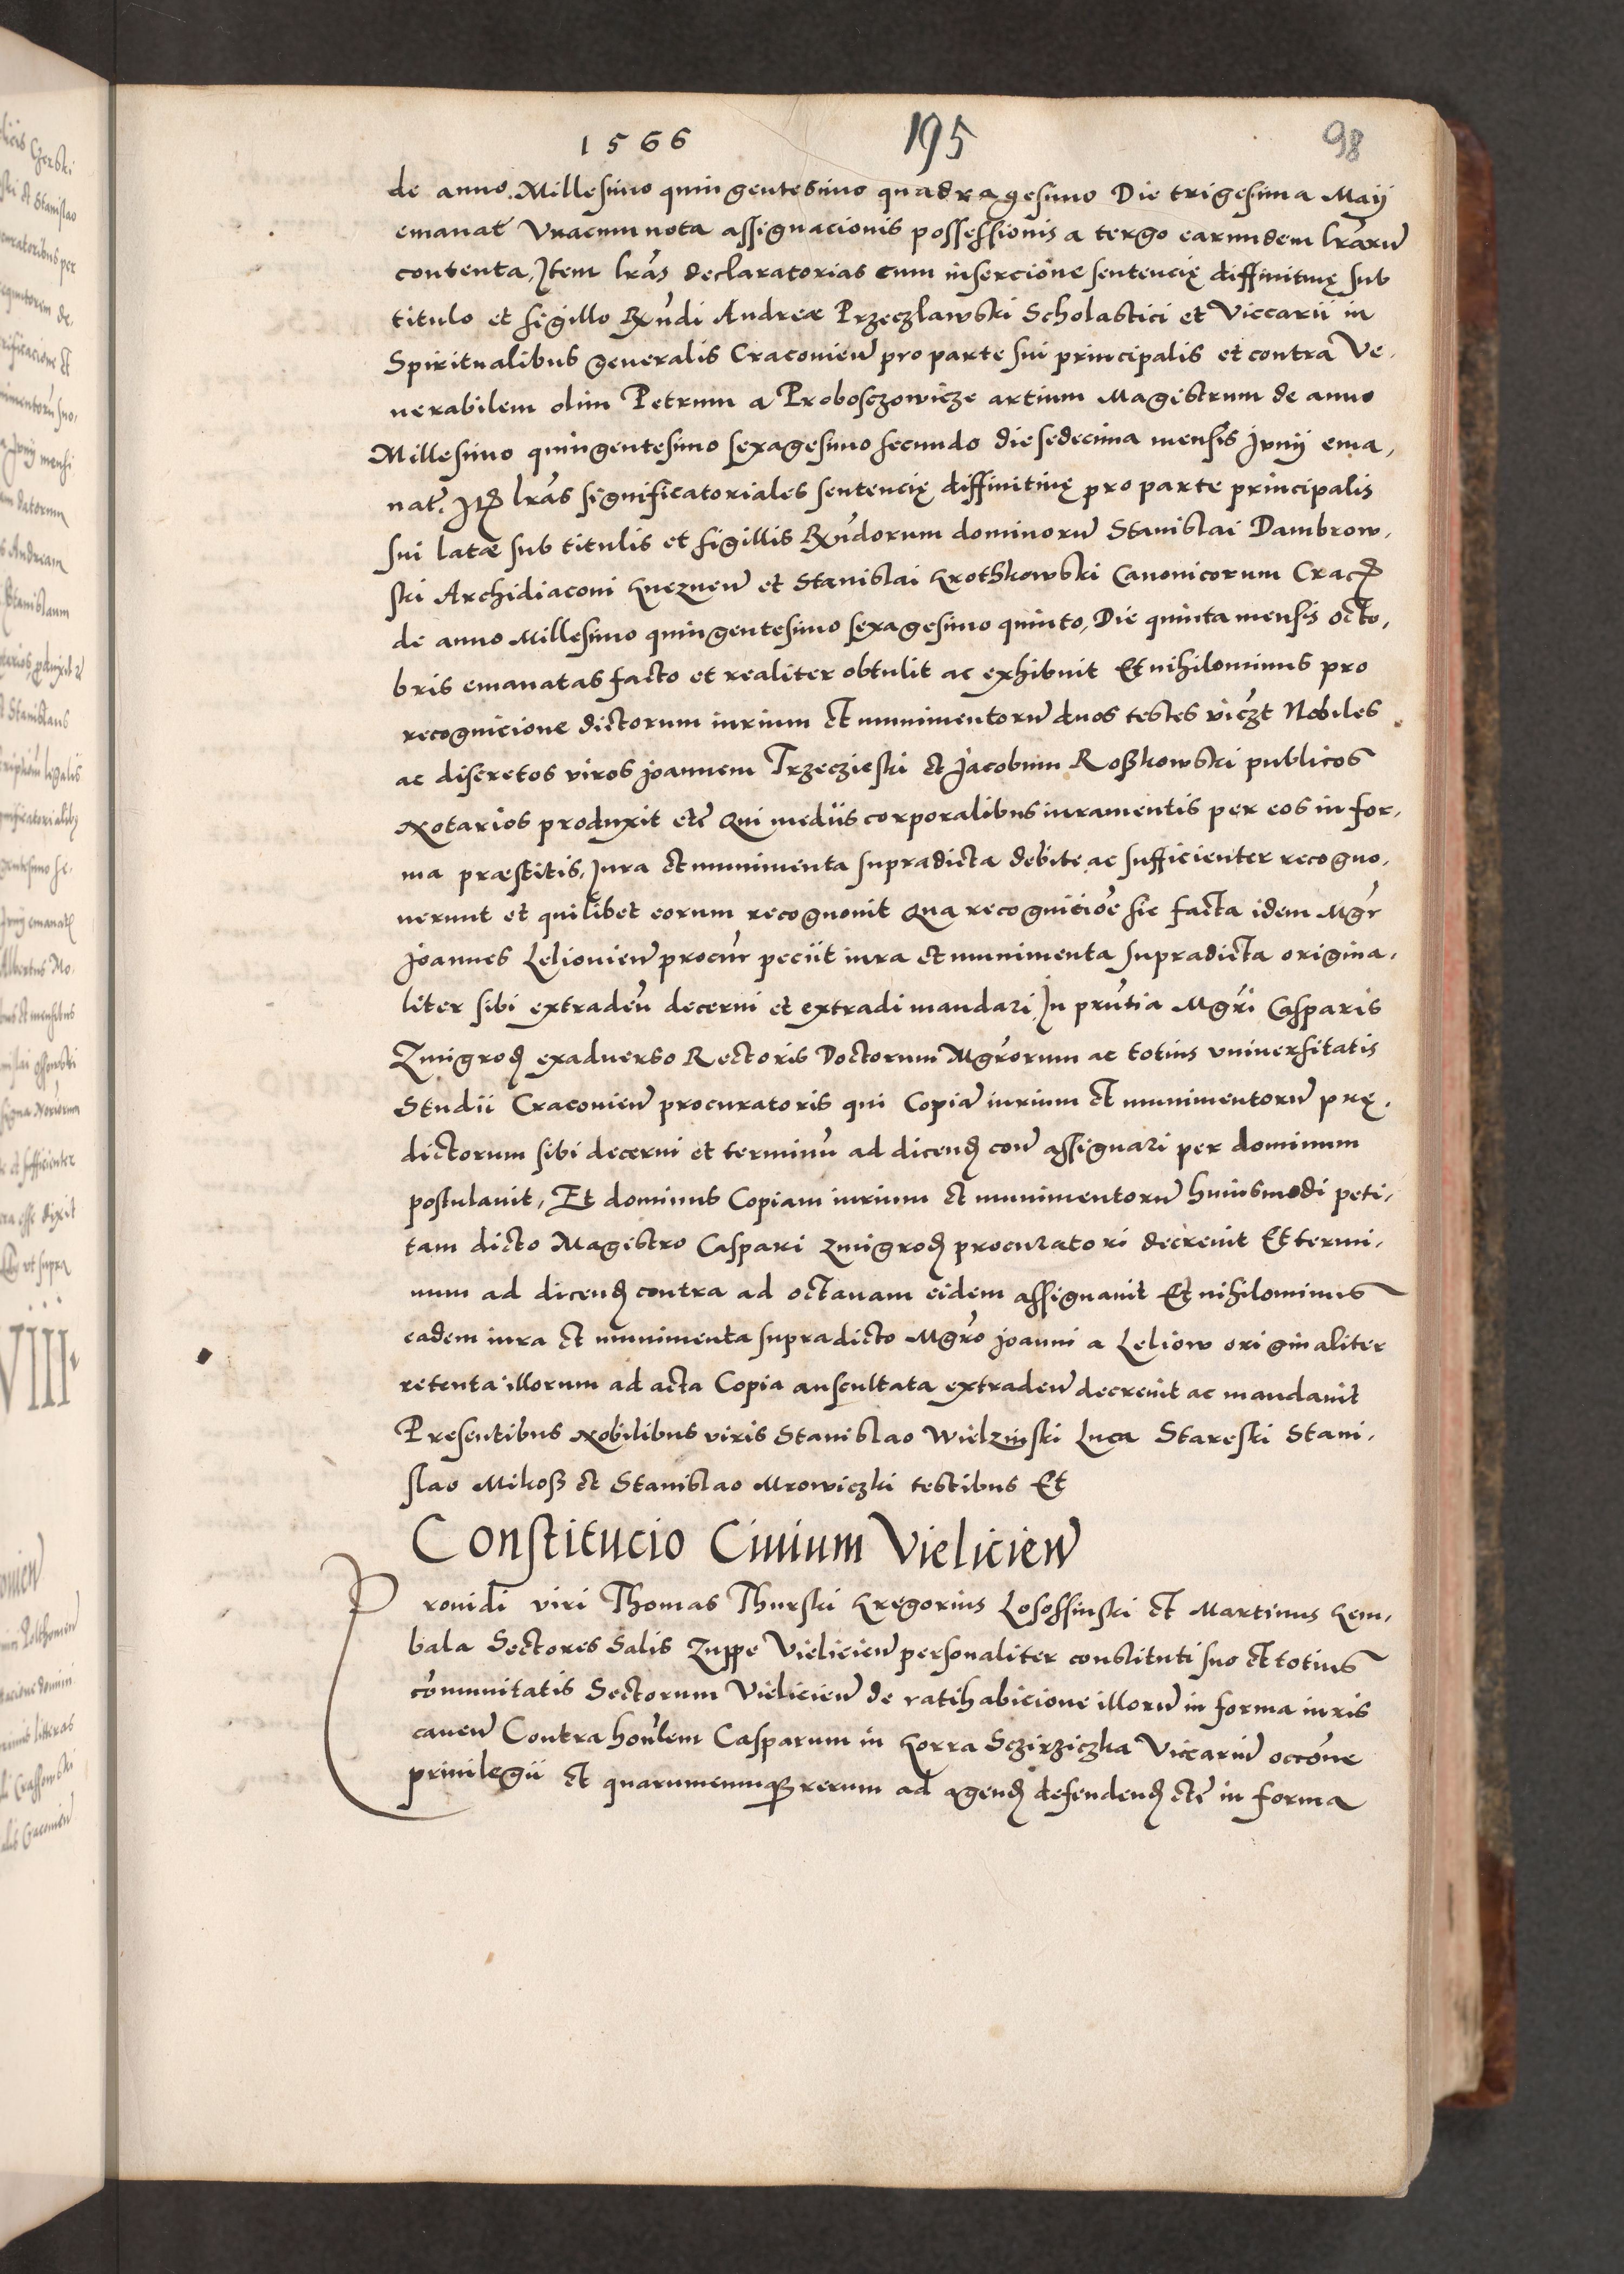 1566 195 98
de anno Millesimo quingentesimo quadragesimo Die trigesima Maij
emanat̃ Vnacum nota assignacionis possessionis a tergo earundem lrãrũ
contenta, Item lrãs declaratorias cum insercione sentencię diffinitiuę sub
titulo et sigillo Rx̃ndi Andreæ Przeczlawski Scholastici et Viccarii in
Spiritualibus generalis Cracouieñ pro parte sui principalis et contra Ve,
nerabilem olim Petrum a Proboszczowicze artium Magistrum de anno
Millesimo quingentesimo sexagesimo secundo die sedecima mensis Junij ema,
nat̃. Itẽ lrãs significatoriales sentencię diffinitiuę pro parte principalis
sui latæ sub titulis et sigillis Rx̃ndorum dominorũ Stanislai Dambrow,
ski Archidiaconi Gnezneñ et Stanislai Krothkowski Canonicorum Crac̃
de anno Millesimo quingentesimo sexagesimo quinto, Die quinta mensis octo,
bris emanatas facto et realiter obtulit ac exhibuit Et nihilominus pro
recognicione dictorum iurium et munimentorũ duos testes viczt Nobiles
ac discretos viros Joannem Trzeczieski et Jacobum Roßkowski publicos
Notarios produxit etc̃ Qui mediis corporalibus iuramentis per eos in for,
ma præstitis, Jura et munimenta supradicta debite ac sufficienter recogno,
uerunt et quilibet eorum recognouit Qua recognitiõe sic facta idem Mgr̃
Joannes Leliouieñ procur̃ peciit iura et munimenta supradicta origina,
liter sibi extradeñ decerni et extradi mandari, In prñtia Mgr̃i Casparis
Zmigrod̃ exaduerso Rectoris Doctorum Mgr̃orum ac totius vniuersitatis
Studii Cracouieñ procuratoris qui Copiã iurium et munimentorũ prę,
dictorum sibi decerni et terminũ ad dicend̃ coñ assignari per dominum
postulauit, Et dominus Copiam iurium et munimentorũ huiusmodi peti,
tam dicto Magistro Caspari Zmigrod̃ procuratori decreuit Et termi,
num ad dicend̃ contra ad octauam eidem assignauit Et nihilominus
eadem iura et munimenta supradicto Mgr̃o Joanni a Leliow originaliter
retenta illorum ad acta Copia auscultata extradeñ decreuit ac mandauit
Presentibus Nobilibus viris Stanislao Wielzinski Luca Stareski Stani,
slao Mikoß et Stanislao Mrowiczki testibus Et
Constitucio Ciuium Vielicieñ
Prouidi viri Thomas Thurski Gregorius Lososſinski et Martinus Gem,
bala Sectores Salis Zuppe Vielicieñ personaliter constituti suo et totius
cõmunitatis Sectorum Vielicieñ de ratihabicione illorũ in forma iuris
caueñ Contra honl̃em Casparum in Gorra Sczirziczka Vicariũ occõne
priuilegii et quarumcumqꝫ rerum ad agend̃ defendend̃ etc̃ in forma